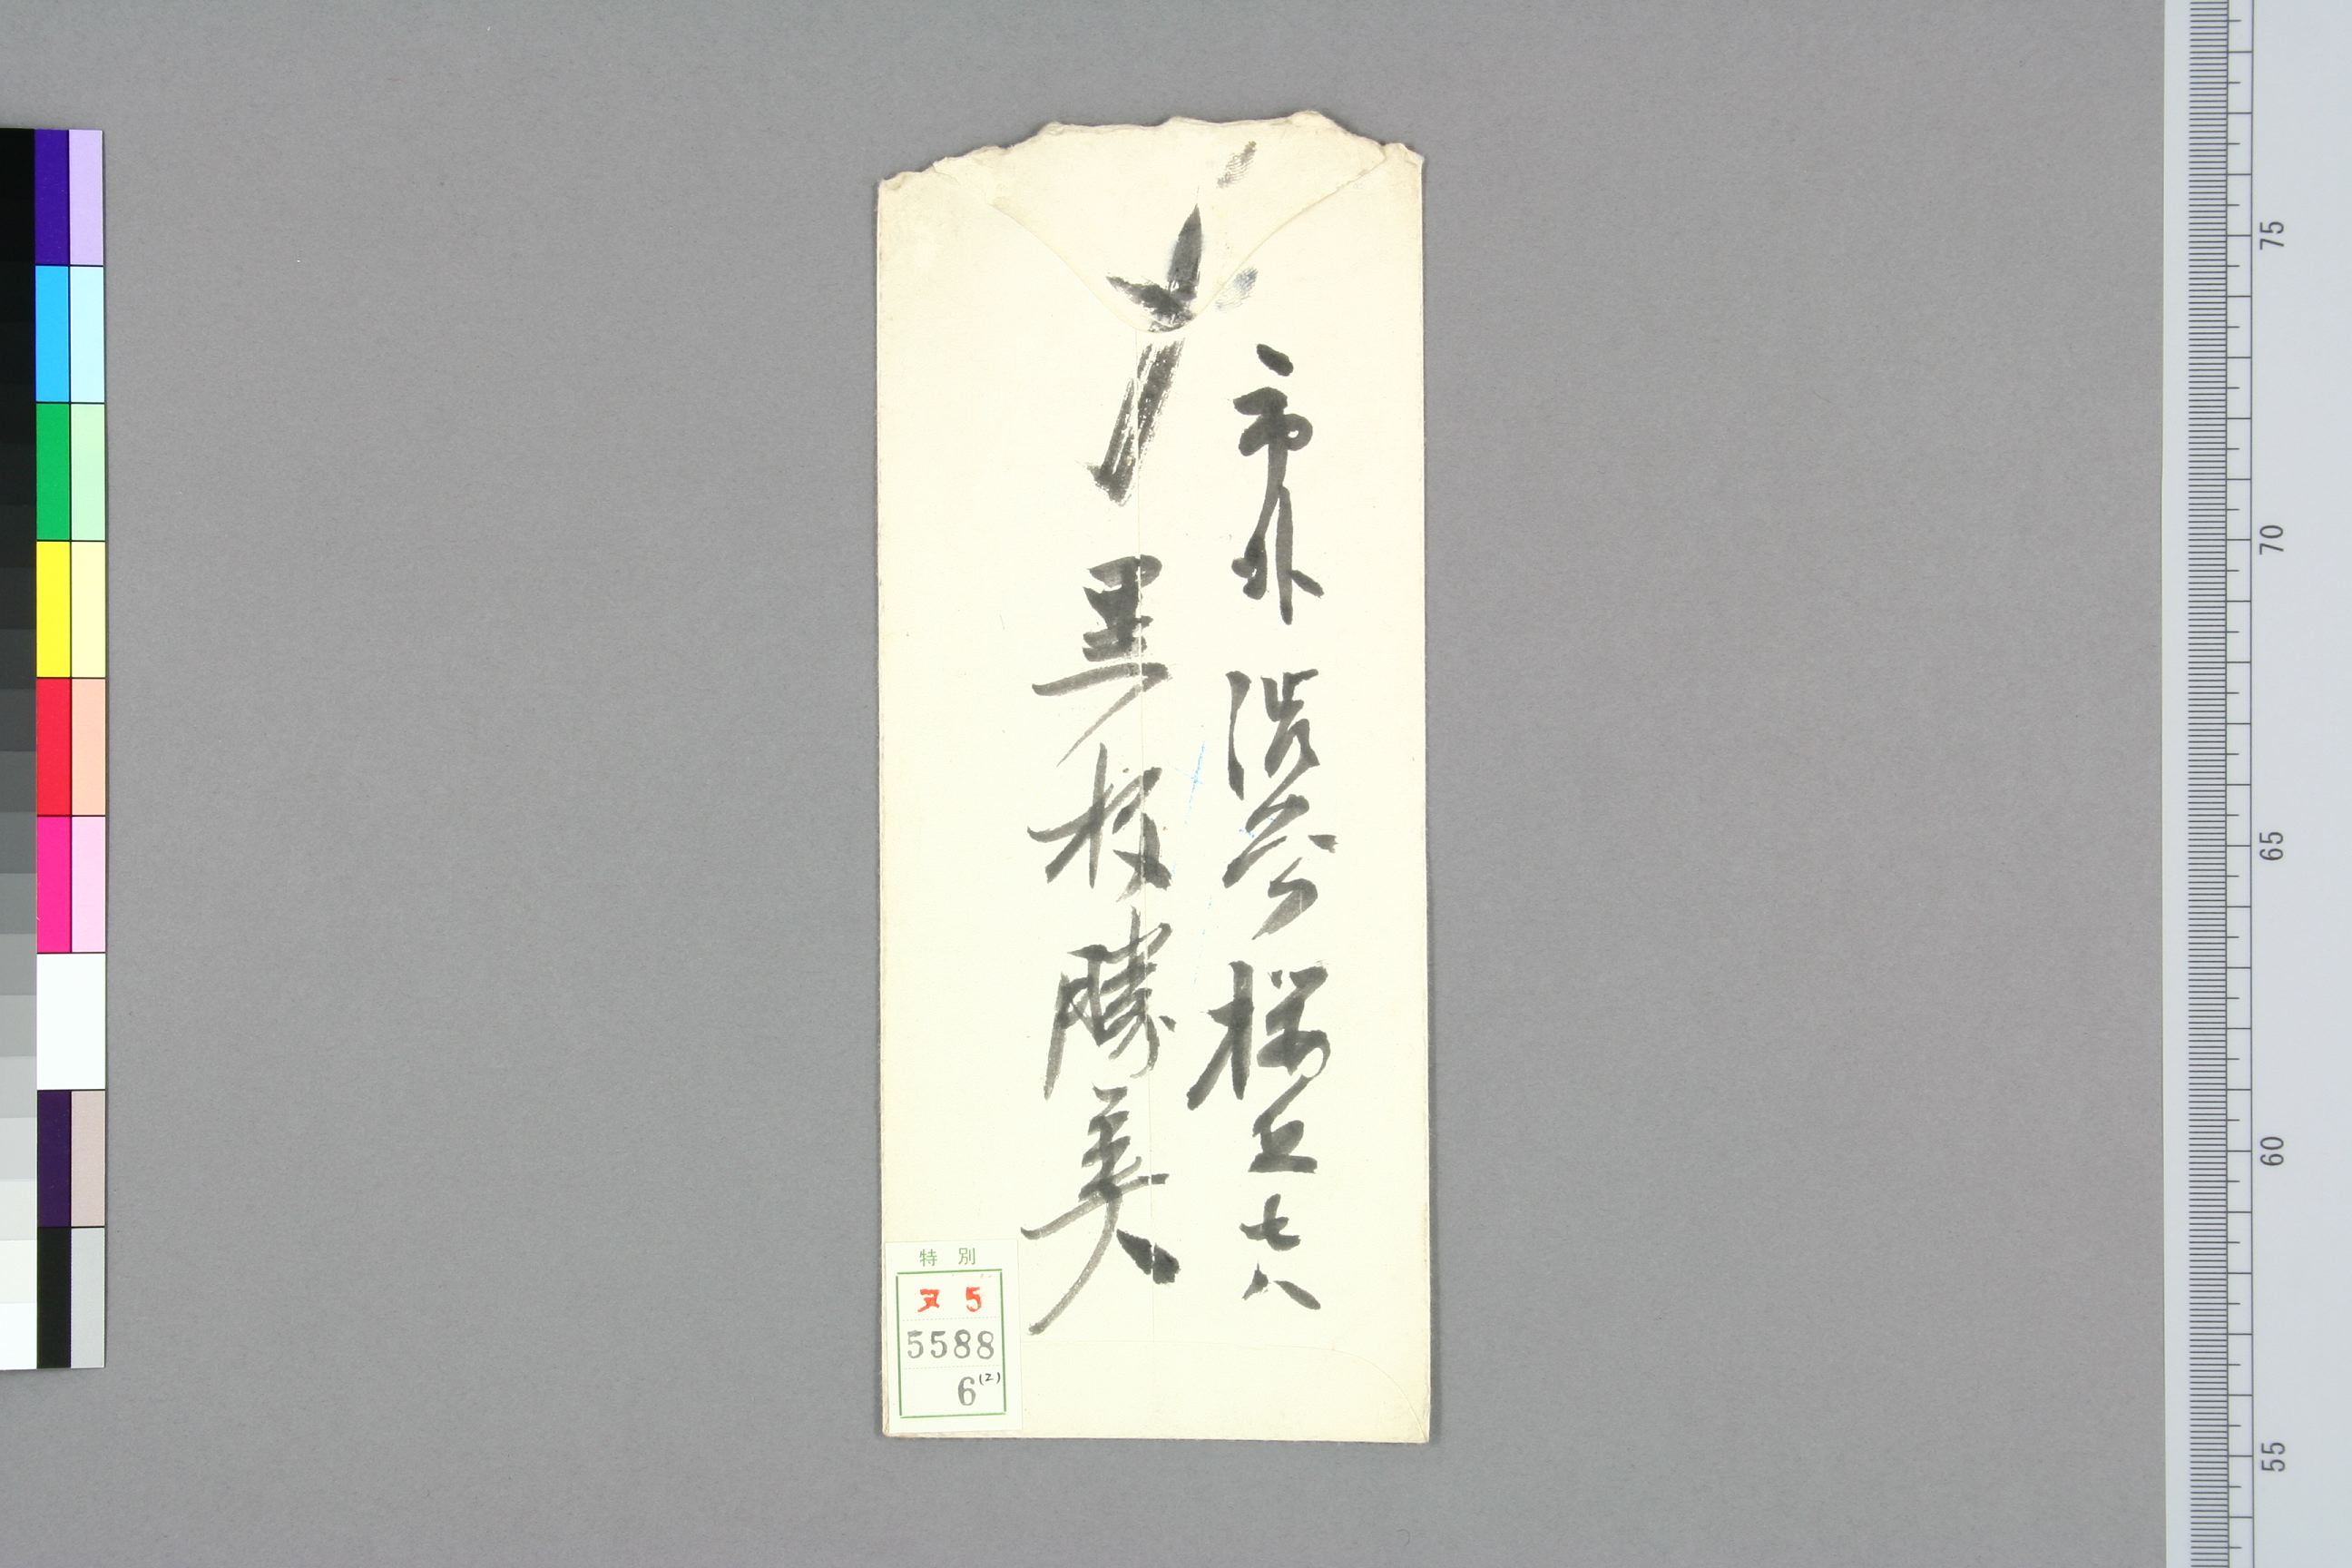 市外 渋谷 桜丘 七八
〆 黒板勝美
特別
ヌ 5
5588
6(2)
75
70
65
60
55